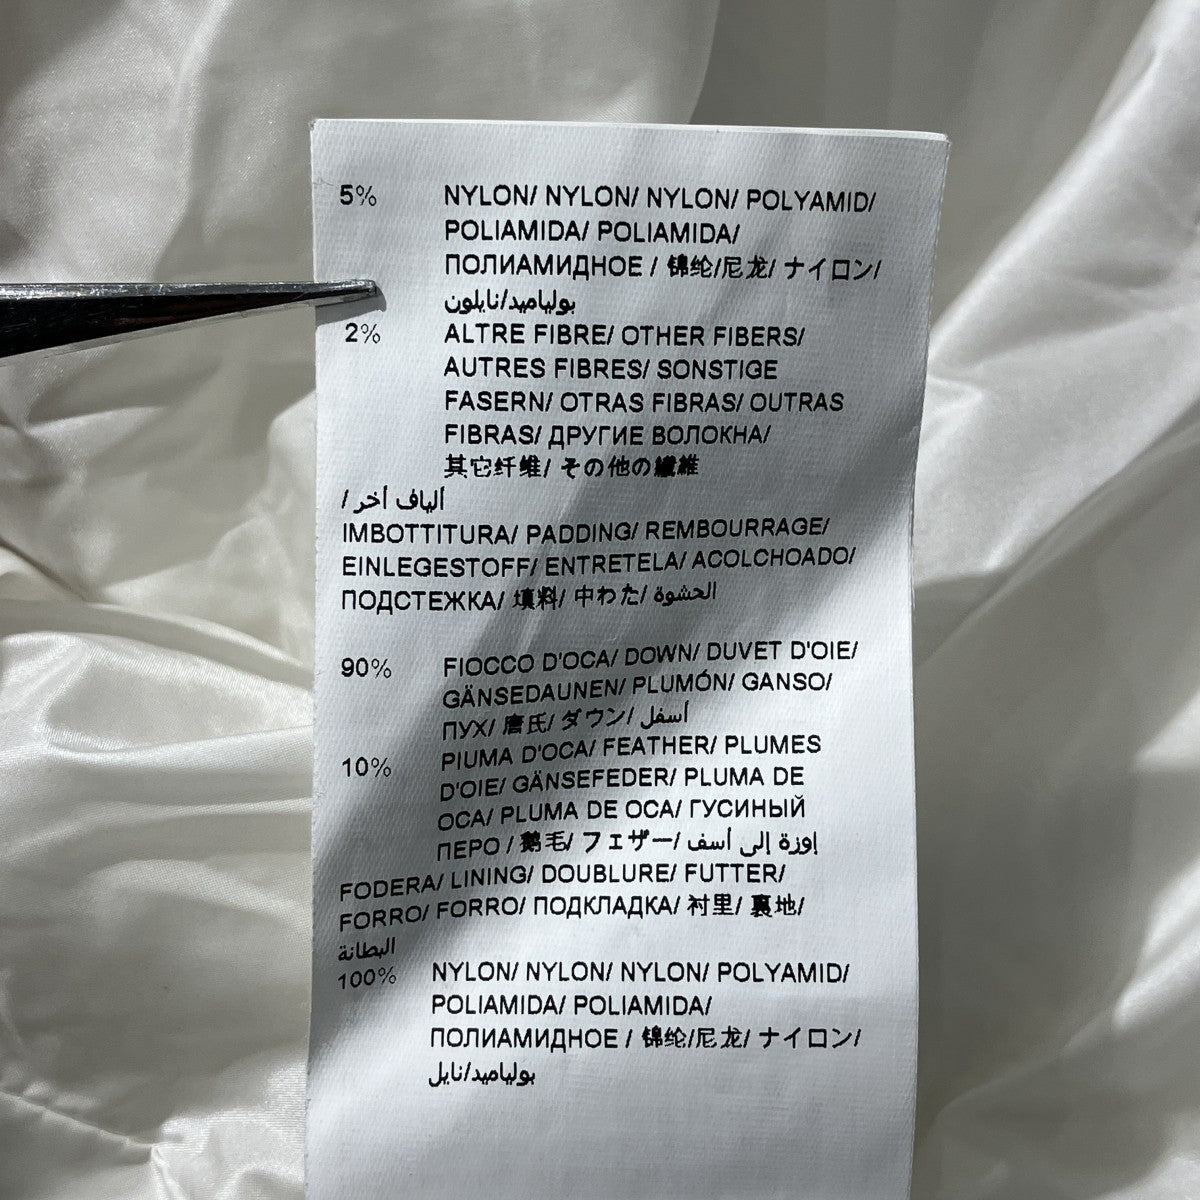 5% NYLON/ NYLON/ NYLON/ POLYAMID/
POLIAMIDA/ POLIAMIDA/
ПОЛИАМИДНОЕ / 锦纶/尼龙/ ナイロン/
بولياميد/نايلون
2% ALTRE FIBRE/ OTHER FIBERS/
AUTRES FIBRES/ SONSTIGE
FASERN/ OTRAS FIBRAS/ OUTRAS
FIBRAS/ ДРУГИЕ ВОЛОКНА/
其它纤维/ その他の繊維
/ ألياف أخر
IMBOTTITURA/ PADDING/ REMBOURRAGE/
EINLEGESTOFF/ ENTRETELA/ ACOLCHOADO/
ПОДСТЕЖКА/ 填料/ 中わた/ الحشوة
90% FIOCCO D'OCA/ DOWN/ DUVET D'OIE/
GÄNSEDAUNEN/ PLUMÓN/ GANSO/
ПУХ/ 唐氏/ ダウン/ أسفل
10% PIUMA D'OCA/ FEATHER/ PLUMES
D'OIE/ GÄNSEFEDER/ PLUMA DE
OCA/ PLUMA DE OCA/ ГУСИНЫЙ
ПЕРО / 鹅毛/ フェザー/ إوزة إلى أسف
FODERA/ LINING/ DOUBLURE/ FUTTER/
FORRO/ FORRO/ ПОДКЛАДКА/ 衬里/ 裏地/
البطانة
100% NYLON/ NYLON/ NYLON/ POLYAMID/
POLIAMIDA/ POLIAMIDA/
ПОЛИАМИДНОЕ / 锦纶/尼龙/ ナイロン/
بولياميد/نايل